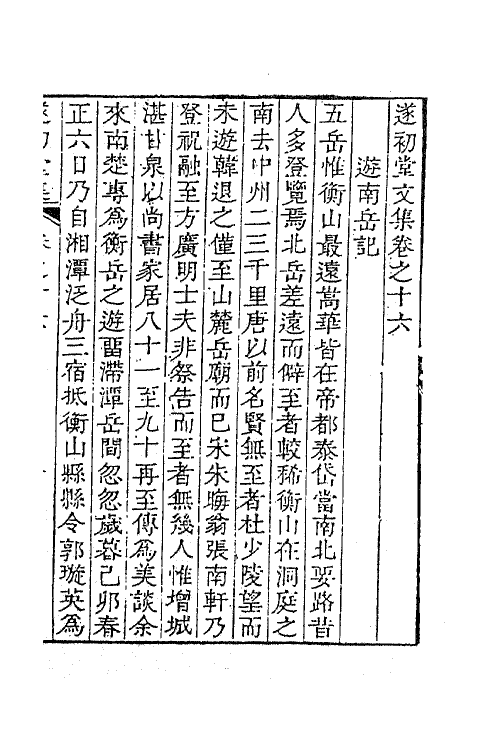 遂初堂文集卷之十六
遊南岳記
五岳惟衡山最遠嵩華皆在帝都泰岱當南北要路昔
人多登覽焉北岳差遠而僻至者較稀衡山在洞庭之
南去中州二三千里唐以前名賢無至者杜少陵望而
未遊韓退之僅至山麓岳廟而已宋朱晦翁張南軒乃
登祝融至方廣明士夫非祭告而至者無幾人惟增城
湛甘泉以尚書家居八十一至九十再至傳為美談余
來南楚專為衡岳之遊畱滯潭岳間忽忽歲暮己卯春
正六日乃自湘潭泛舟三宿抵衡山縣縣令郭璇英為